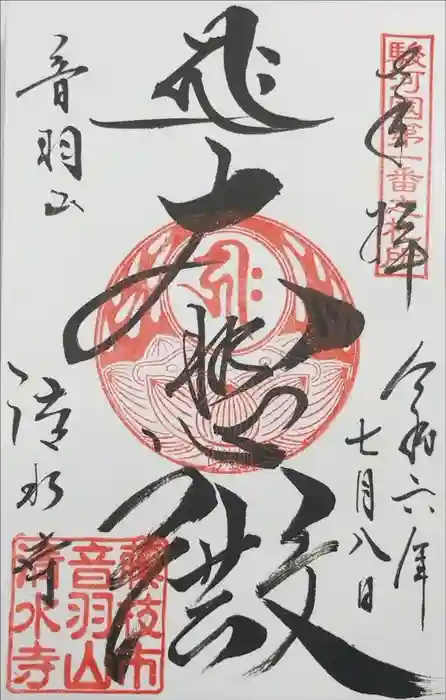 奉拝
駿河國第一番之札所
令和六年
七月八日
大悲殿
音羽山
清水寺
藤枝市
音羽山
清水寺